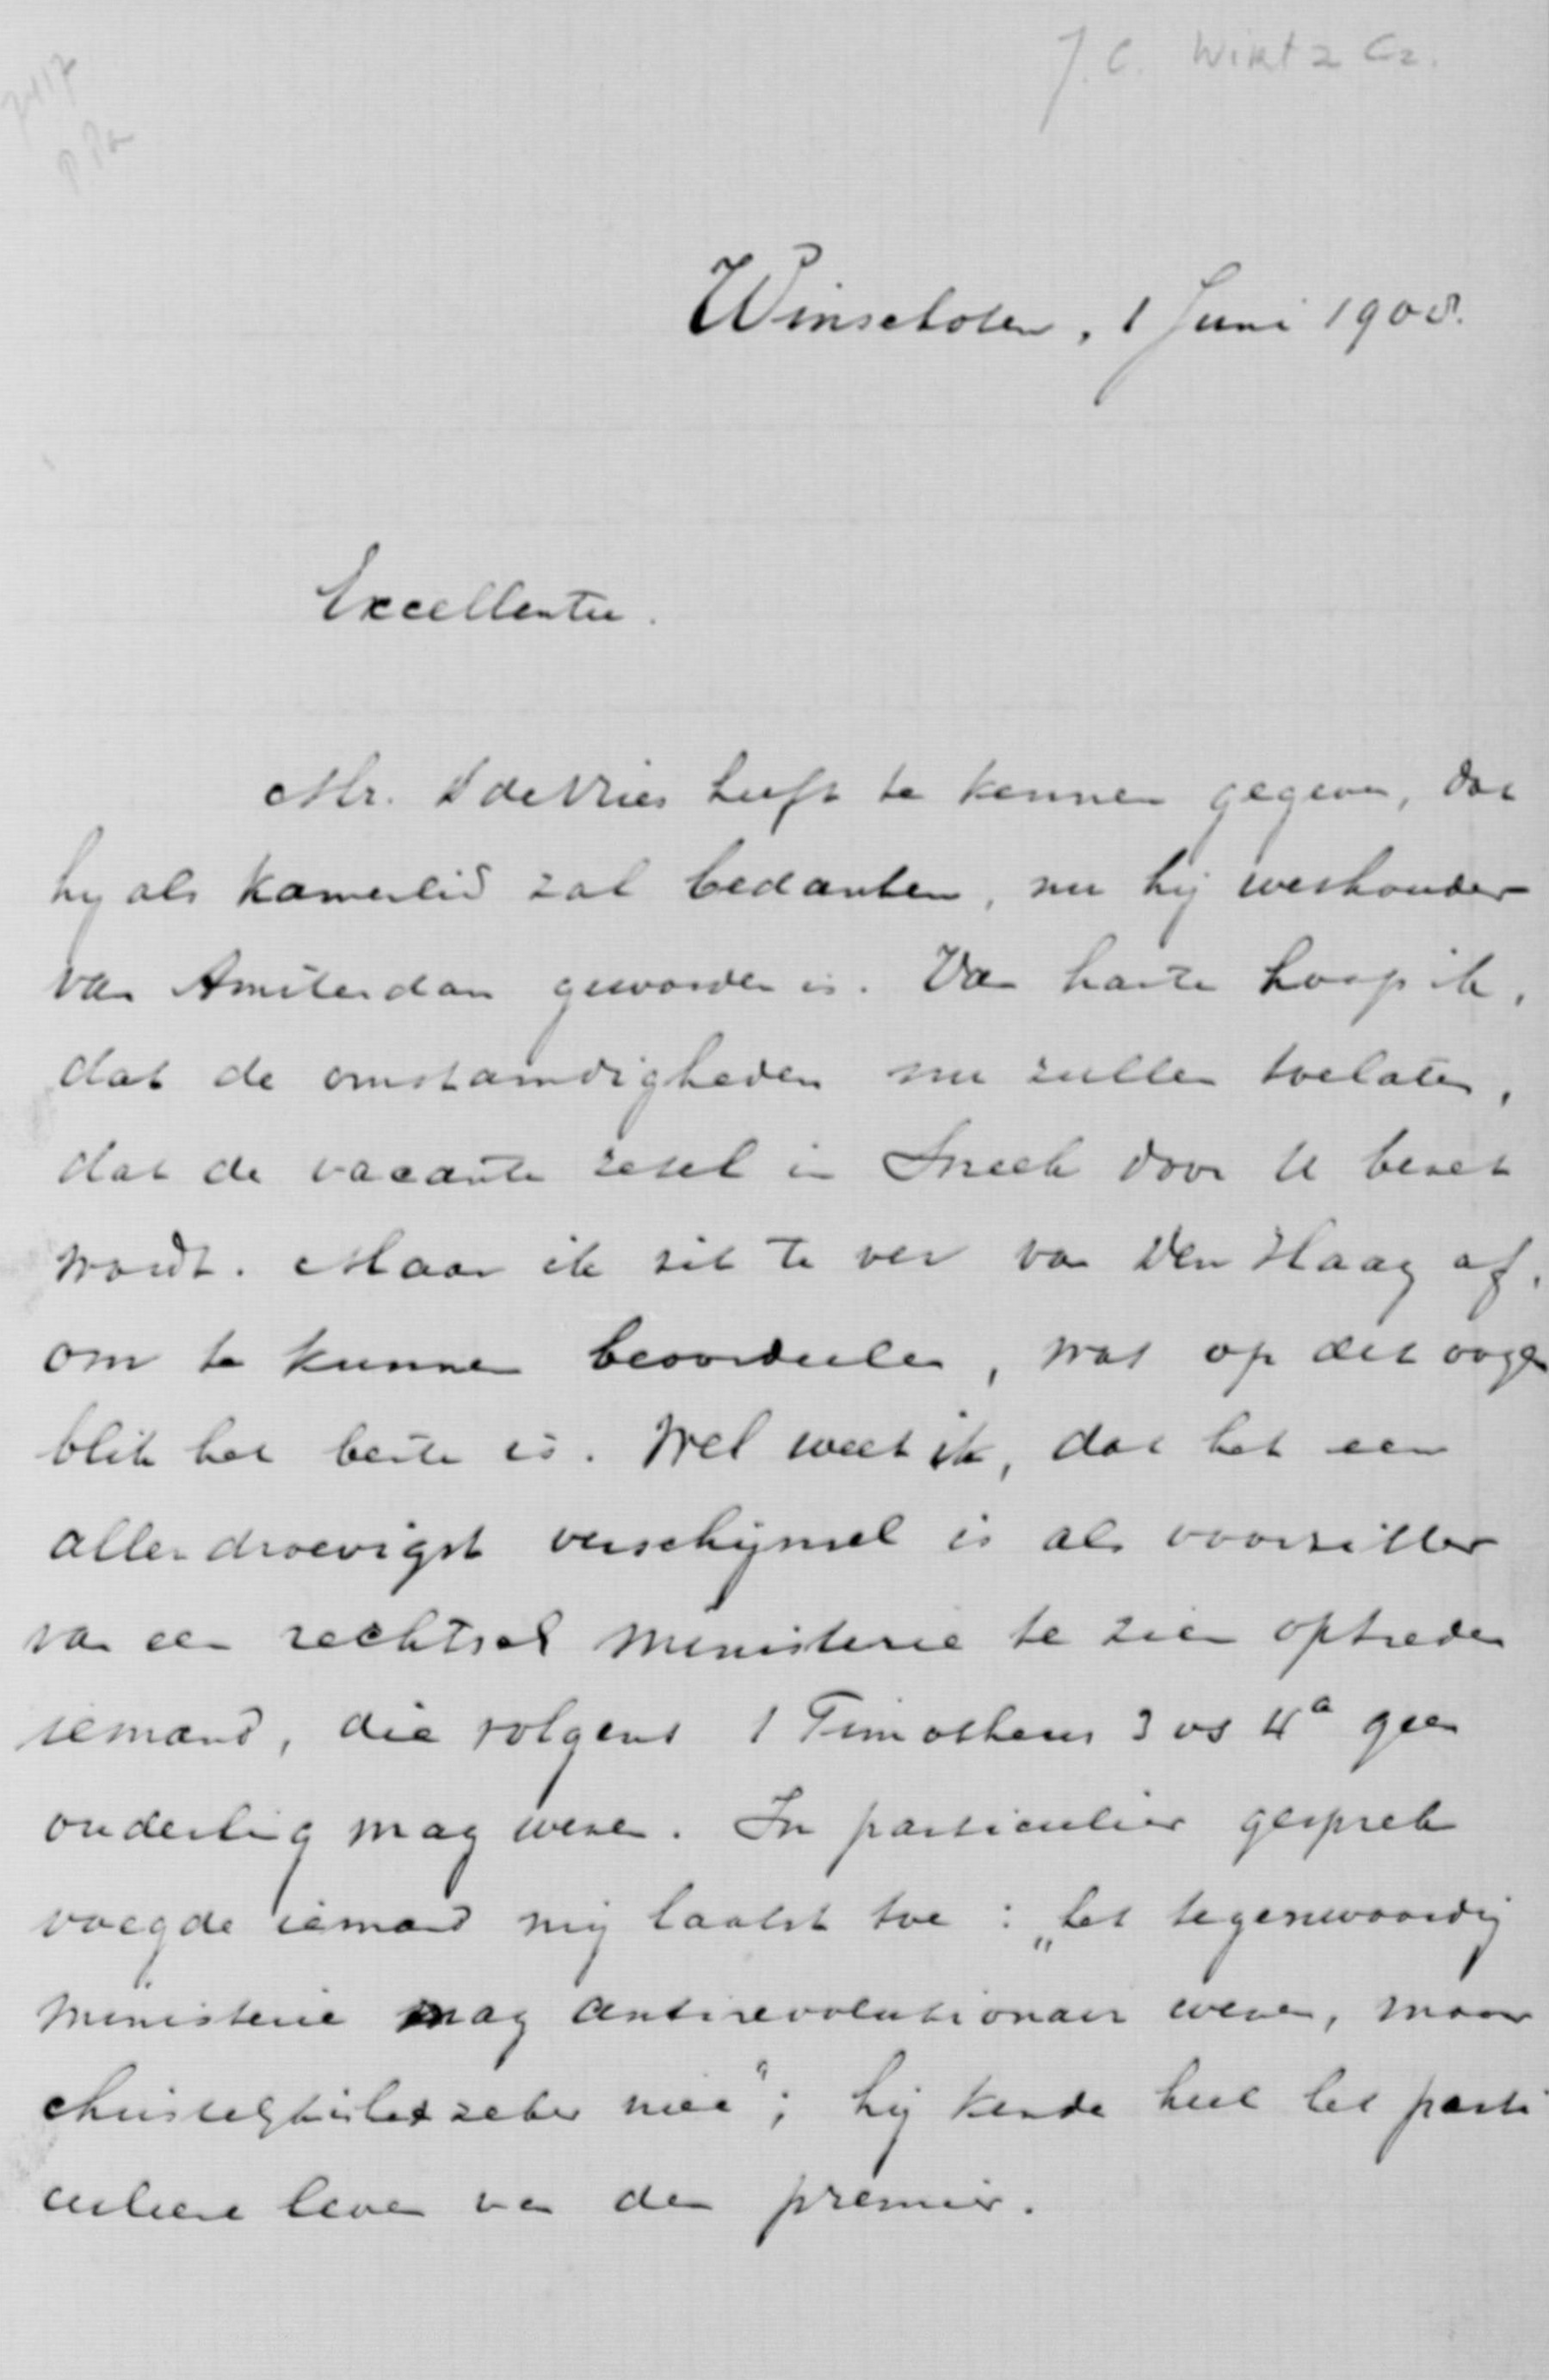 J. C. Wirtz Cz.
Winschoten, 1 Juni 1908.
Excellentie.
Mr. S de Vries heeft te kennen gegeven, dat
hij als kamerlid zal bedanken, nu hij wethouder
van Amsterdam geworden is. Van harte hoop ik,
dat de omstandigheden nu zullen toelaten,
dat de vacante zetel in Sneek door U bezet
wordt. Maar ik zit te ver van Den Haag af,
om te kunnen beoordeelen, wat op dit oogen
blik het beste is. Wel weet ik, dat het een
allerdroevigst verschijnsel is als voorzitter
van een rechtsch ministerie te zien optreden
iemand, die volgens 1 Timotheus 3 vs 4a geen
ouderling mag wezen. In particulier gesprek
voegde iemand mij laatst toe: „het tegenwoordig
ministerie mag antirevolutionair wezen, maar
christelijk is het zeker niet"; hij kende heel het parti
culiere leven van den premier.